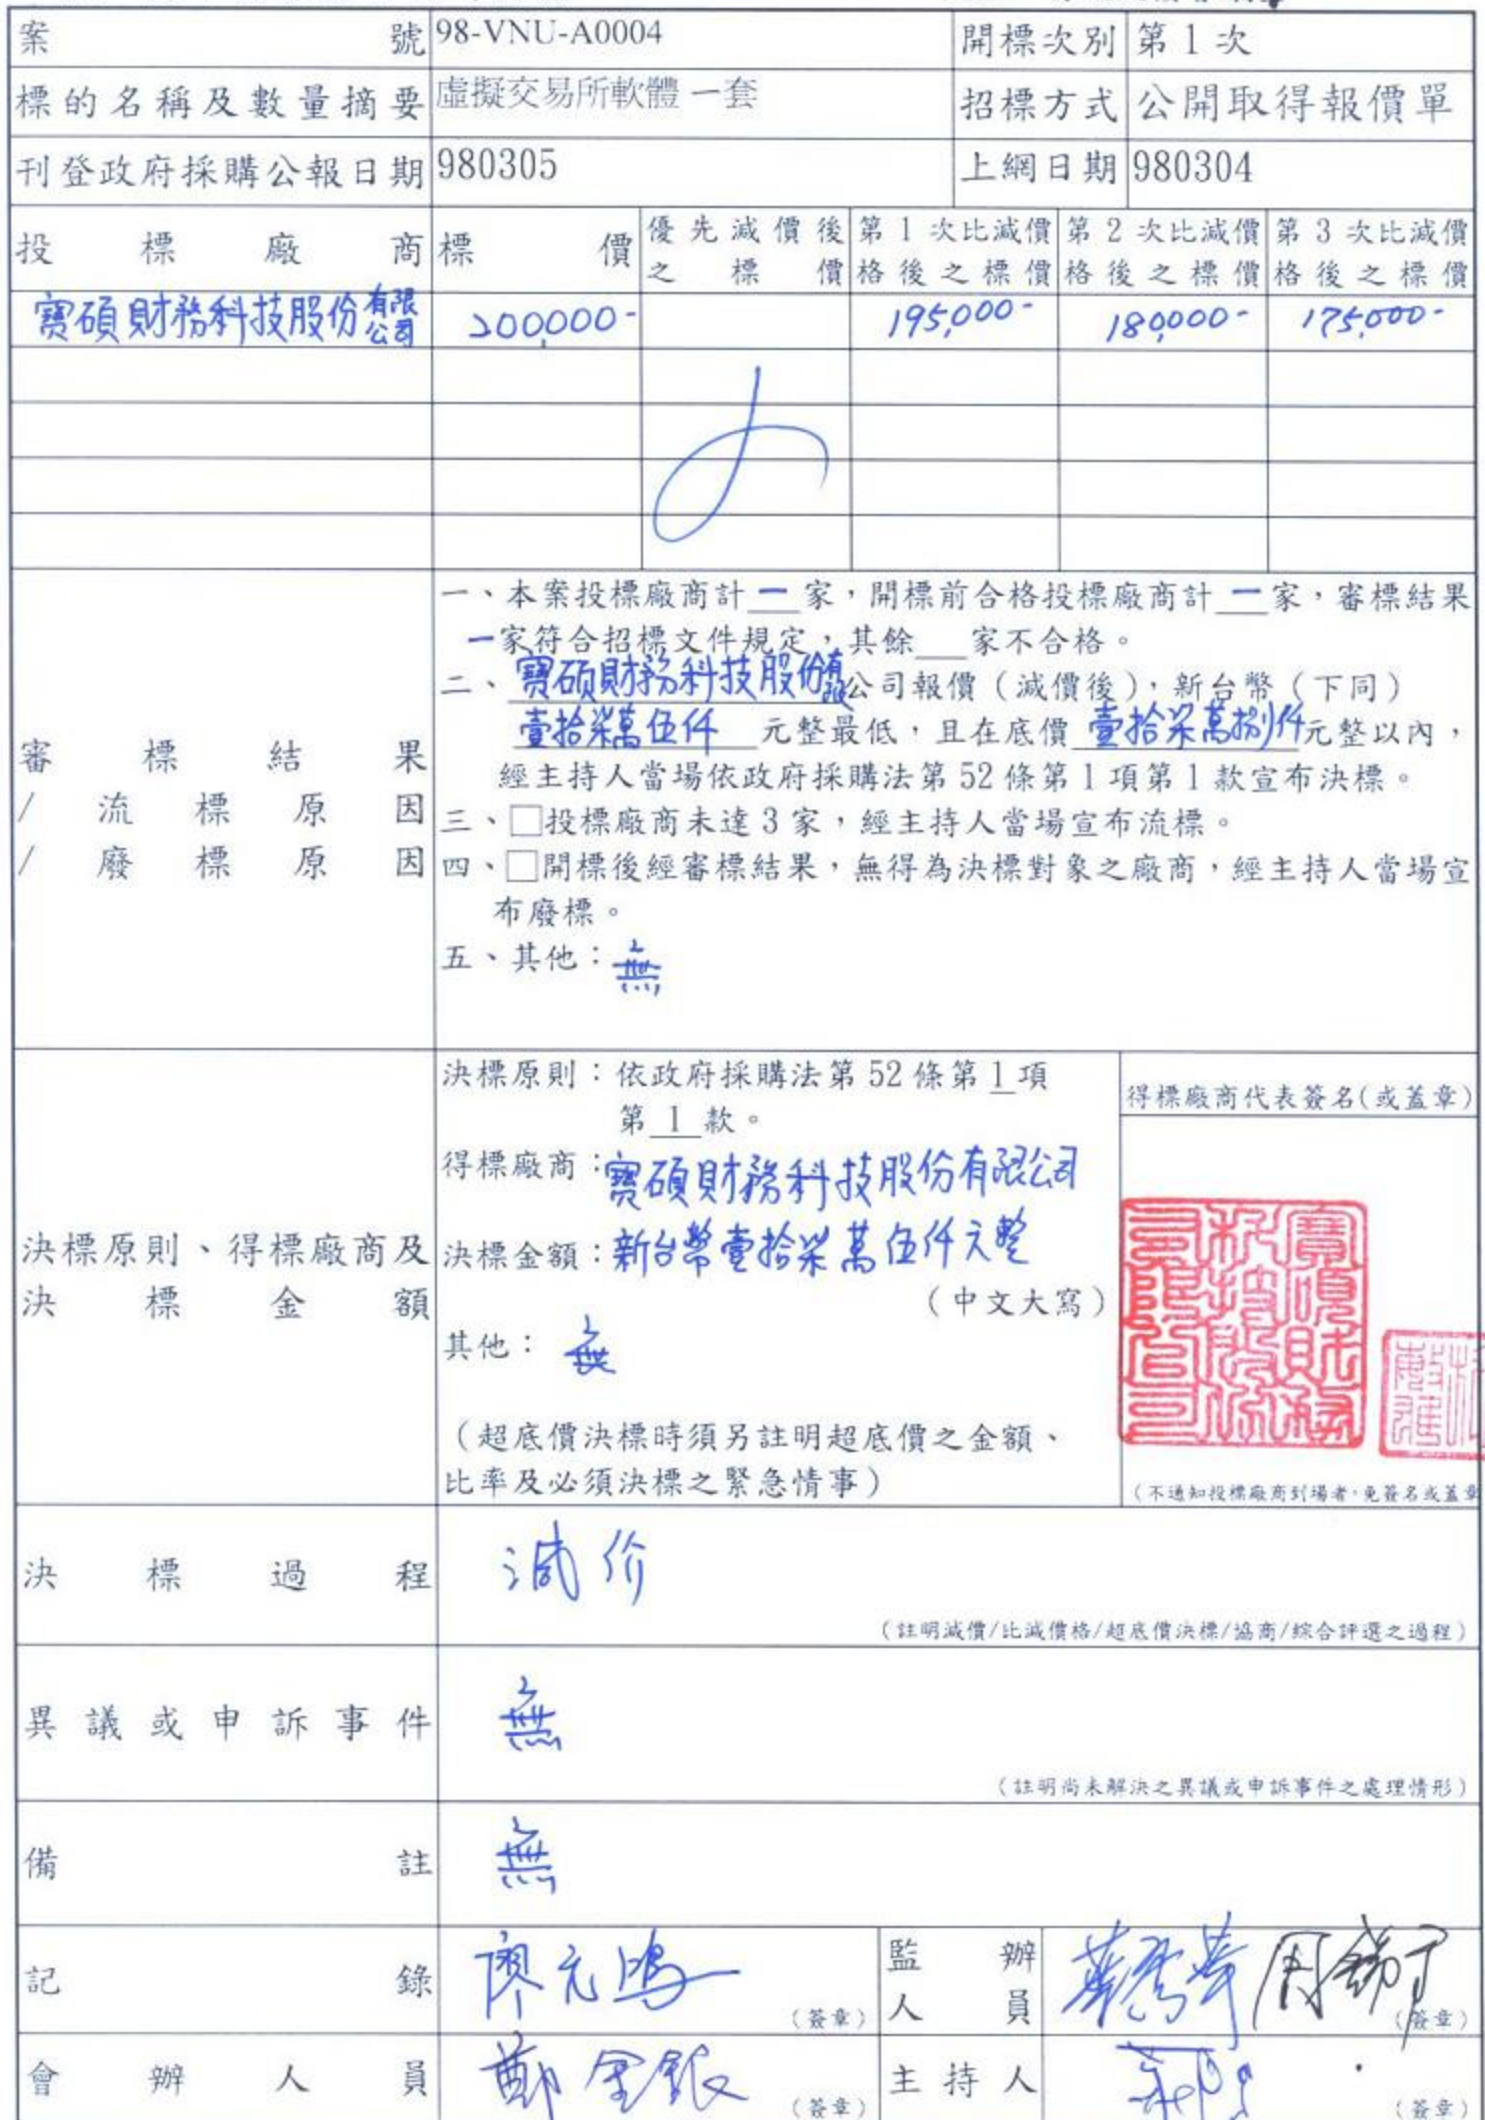 案號 98-VNU-A0004 開標次別 第1次
標的名稱及數量摘要 虛擬交易所軟體一套 招標方式 公開取得報價單
刊登政府採購公報日期 980305 上網日期 980304
投標廠商 標價 優先減價後之標價 第1次比減價格後之標價 第2次比減價格後之標價 第3次比減價格後之標價
寶碩財務科技股份有限公司 200,000- 195,000- 180,000- 175,000-
審標結果
/流標原因
/廢標原因
一、本案投標廠商計一家，開標前合格投標廠商計一家，審標結果
一家符合招標文件規定，其餘__家不合格。
二、寶碩財務科技股份有限公司報價（減價後），新台幣（下同）
壹拾柒萬伍仟 元整最低，且在底價 壹拾柒萬捌仟元整以內，
經主持人當場依政府採購法第52條第1項第1款宣布決標。
三、□投標廠商未達3家，經主持人當場宣布流標。
四、□開標後經審標結果，無得為決標對象之廠商，經主持人當場宣
布廢標。
五、其他：無
決標原則、得標廠商及
決標金額
決標原則：依政府採購法第52條第1項
第1款。
得標廠商：寶碩財務科技股份有限公司
決標金額：新台幣壹拾柒萬伍仟元整
（中文大寫）
其他：無
（超底價決標時須另註明超底價之金額、
比率及必須決標之緊急情事）
得標廠商代表簽名(或蓋章)
寶碩財務科技股份有限公司
（不通知投標廠商到場者，免簽名或蓋章
決標過程 減价
（註明減價/比減價格/超底價決標/協商/綜合評選之過程）
異議或申訴事件 無
（註明尚未解決之異議或申訴事件之處理情形）
備註 無
記錄 廖元鴻 （簽章） 監辦人員 （簽章）
會辦人員 鄭金銀 （簽章） 主持人 （簽章）